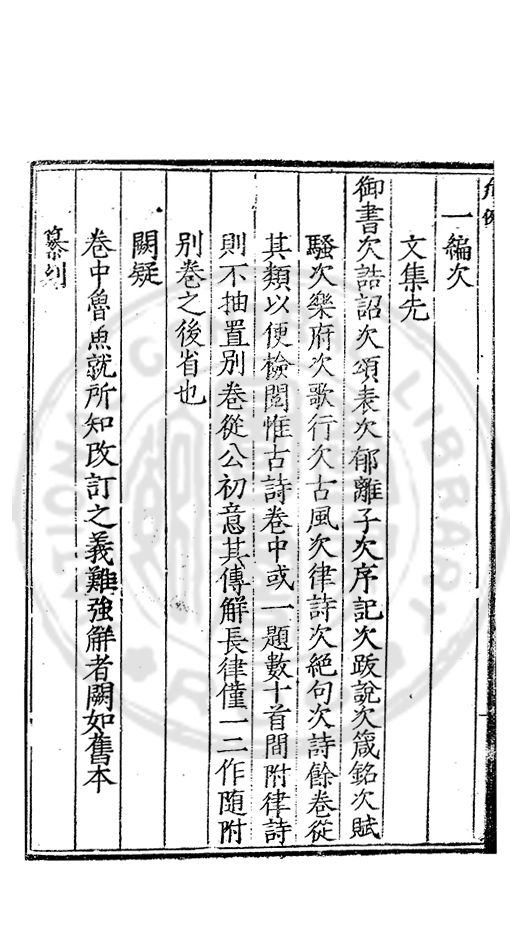 凡例
一編次
文集先
御書次誥詔次頌表次郁離子次序記次跋說次箴銘次賦
騷次樂府次歌行次古風次律詩次絕句次詩餘卷從
其類以便檢閱惟古詩卷中或一題數十首間附律詩
則不抽置別卷從公初意其傳解長律僅一二作隨附
別卷之後省也
闕疑
卷中魯魚就所知改訂之義難強解者闕如舊本
纂列